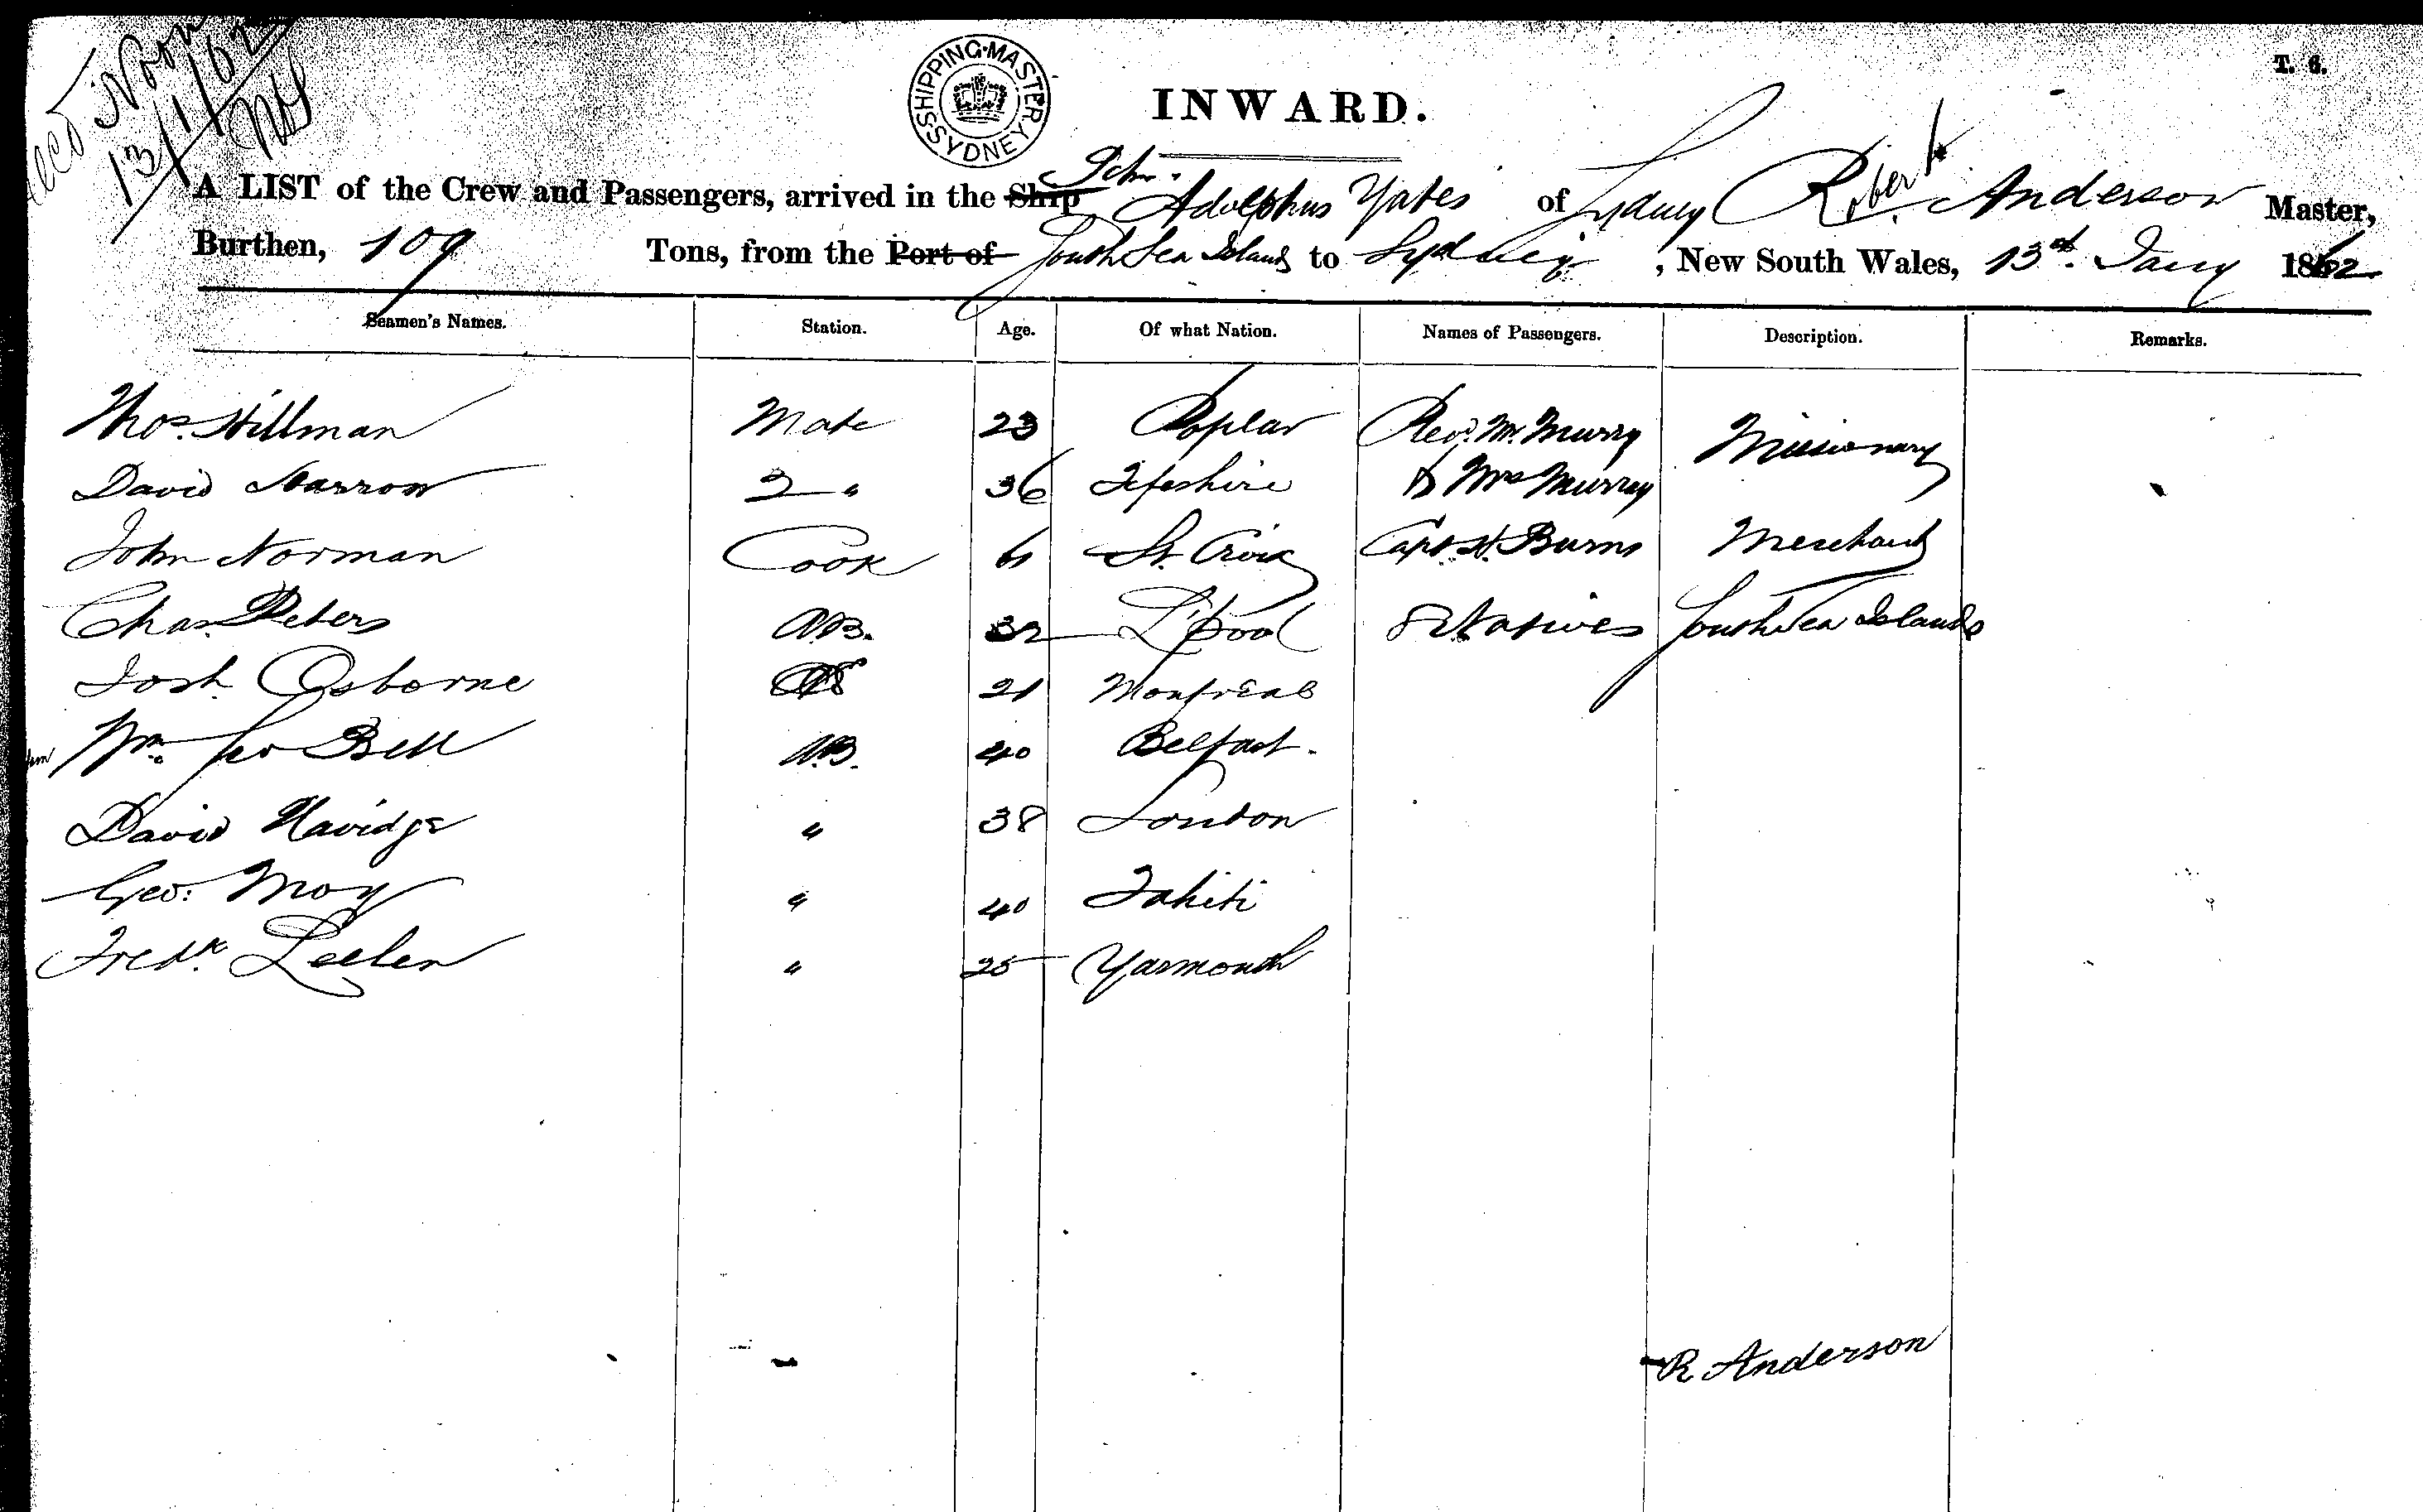 Noon
13/1/62
SHIPPING MASTER SYDNEY
T. 6.
INWARD.
A LIST of the Crew and Passengers, arrived in the Ship Schr. Adolphus Yates of Sydney Robert Anderson Master,
Burthen, 109 Tons, from the Port of South Sea Islands to Sydney, New South Wales, 13th Jany 1862
Seamen's Names. Station. Age. Of what Nation. Names of Passengers. Description. Remarks.
Thos. Hillman Mate 23 Poplar Revd. Mr. Murray Missionary
David Narrow 2 " 36 Fifeshire & Mrs Murray
John Norman Cook St. Croix Capt. H. Burns Merchant
Chas. Peters AB. 32 L'pool 8 Natives South Sea Islands
Josh. Osborne 21 Montreal
Wm. Geo Bell AB. 40 Belfast.
David " 38 London
Geo: Moy " 40 Tahiti
Fredk. " 25 Yarmouth
R Anderson